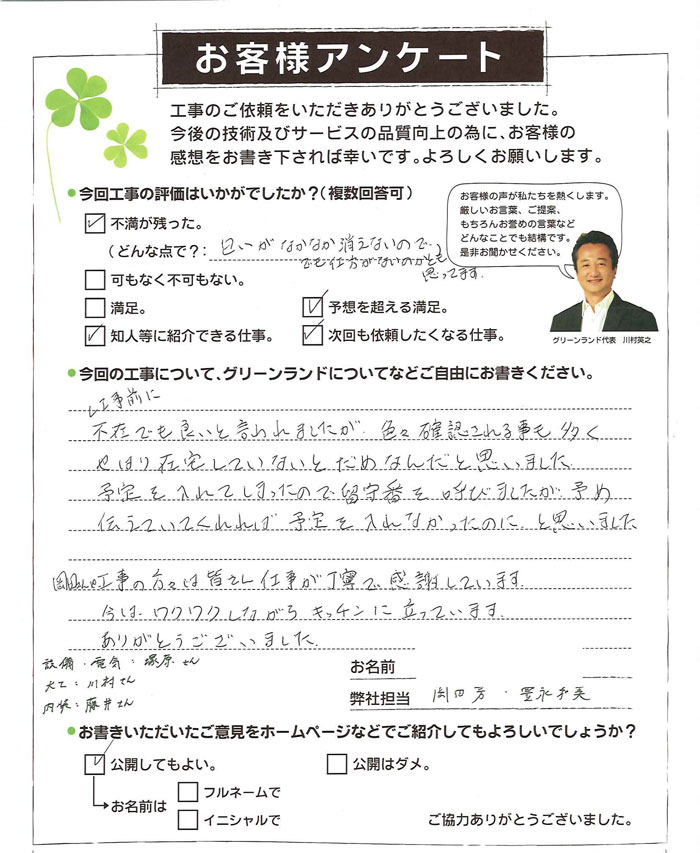 お客様アンケート
工事のご依頼をいただきありがとうございました。
今後の技術及びサービスの品質向上の為に、お客様の
感想をお書き下されば幸いです。よろしくお願いします。
●今回工事の評価はいかがでしたか？（複数回答可）
お客様の声が私たちを熱くします。
厳しいお言葉、ご提案、
もちろんお誉めの言葉など
どんなことでも結構です。
是非お聞かせください。
☑ 不満が残った。
（どんな点で？： 匂いがなかなか消えないので、
でも仕方がないのかとも
思ってます。
□ 可もなく不可もない。
□ 満足。 ☑ 予想を超える満足。
☑ 知人等に紹介できる仕事。 ☑ 次回も依頼したくなる仕事。
グリーンランド代表 川村英之
●今回の工事について、グリーンランドについてなどご自由にお書きください。
工事前に
不在でも良いと言われましたが、色々確認される事も多く
やはり在宅していないとだめなんだと思いました。
予定を入れてしまったので留守番を呼びましたが、予め
伝えていてくれれば予定を入れなかったのに。と思いました
岡田さんや工事の方々は皆さん仕事が丁寧で感謝しています。
今は、ワクワクしながらキッチンに立っています。
ありがとうございました。
設備・電気：塚原さん
大工：川村さん
内装：藤井さん
お名前
弊社担当 岡田芳・
●お書きいただいたご意見をホームページなどでご紹介してもよろしいでしょうか？
☑ 公開してもよい。 □ 公開はダメ。
お名前は □ フルネームで
□ イニシャルで
ご協力ありがとうございました。